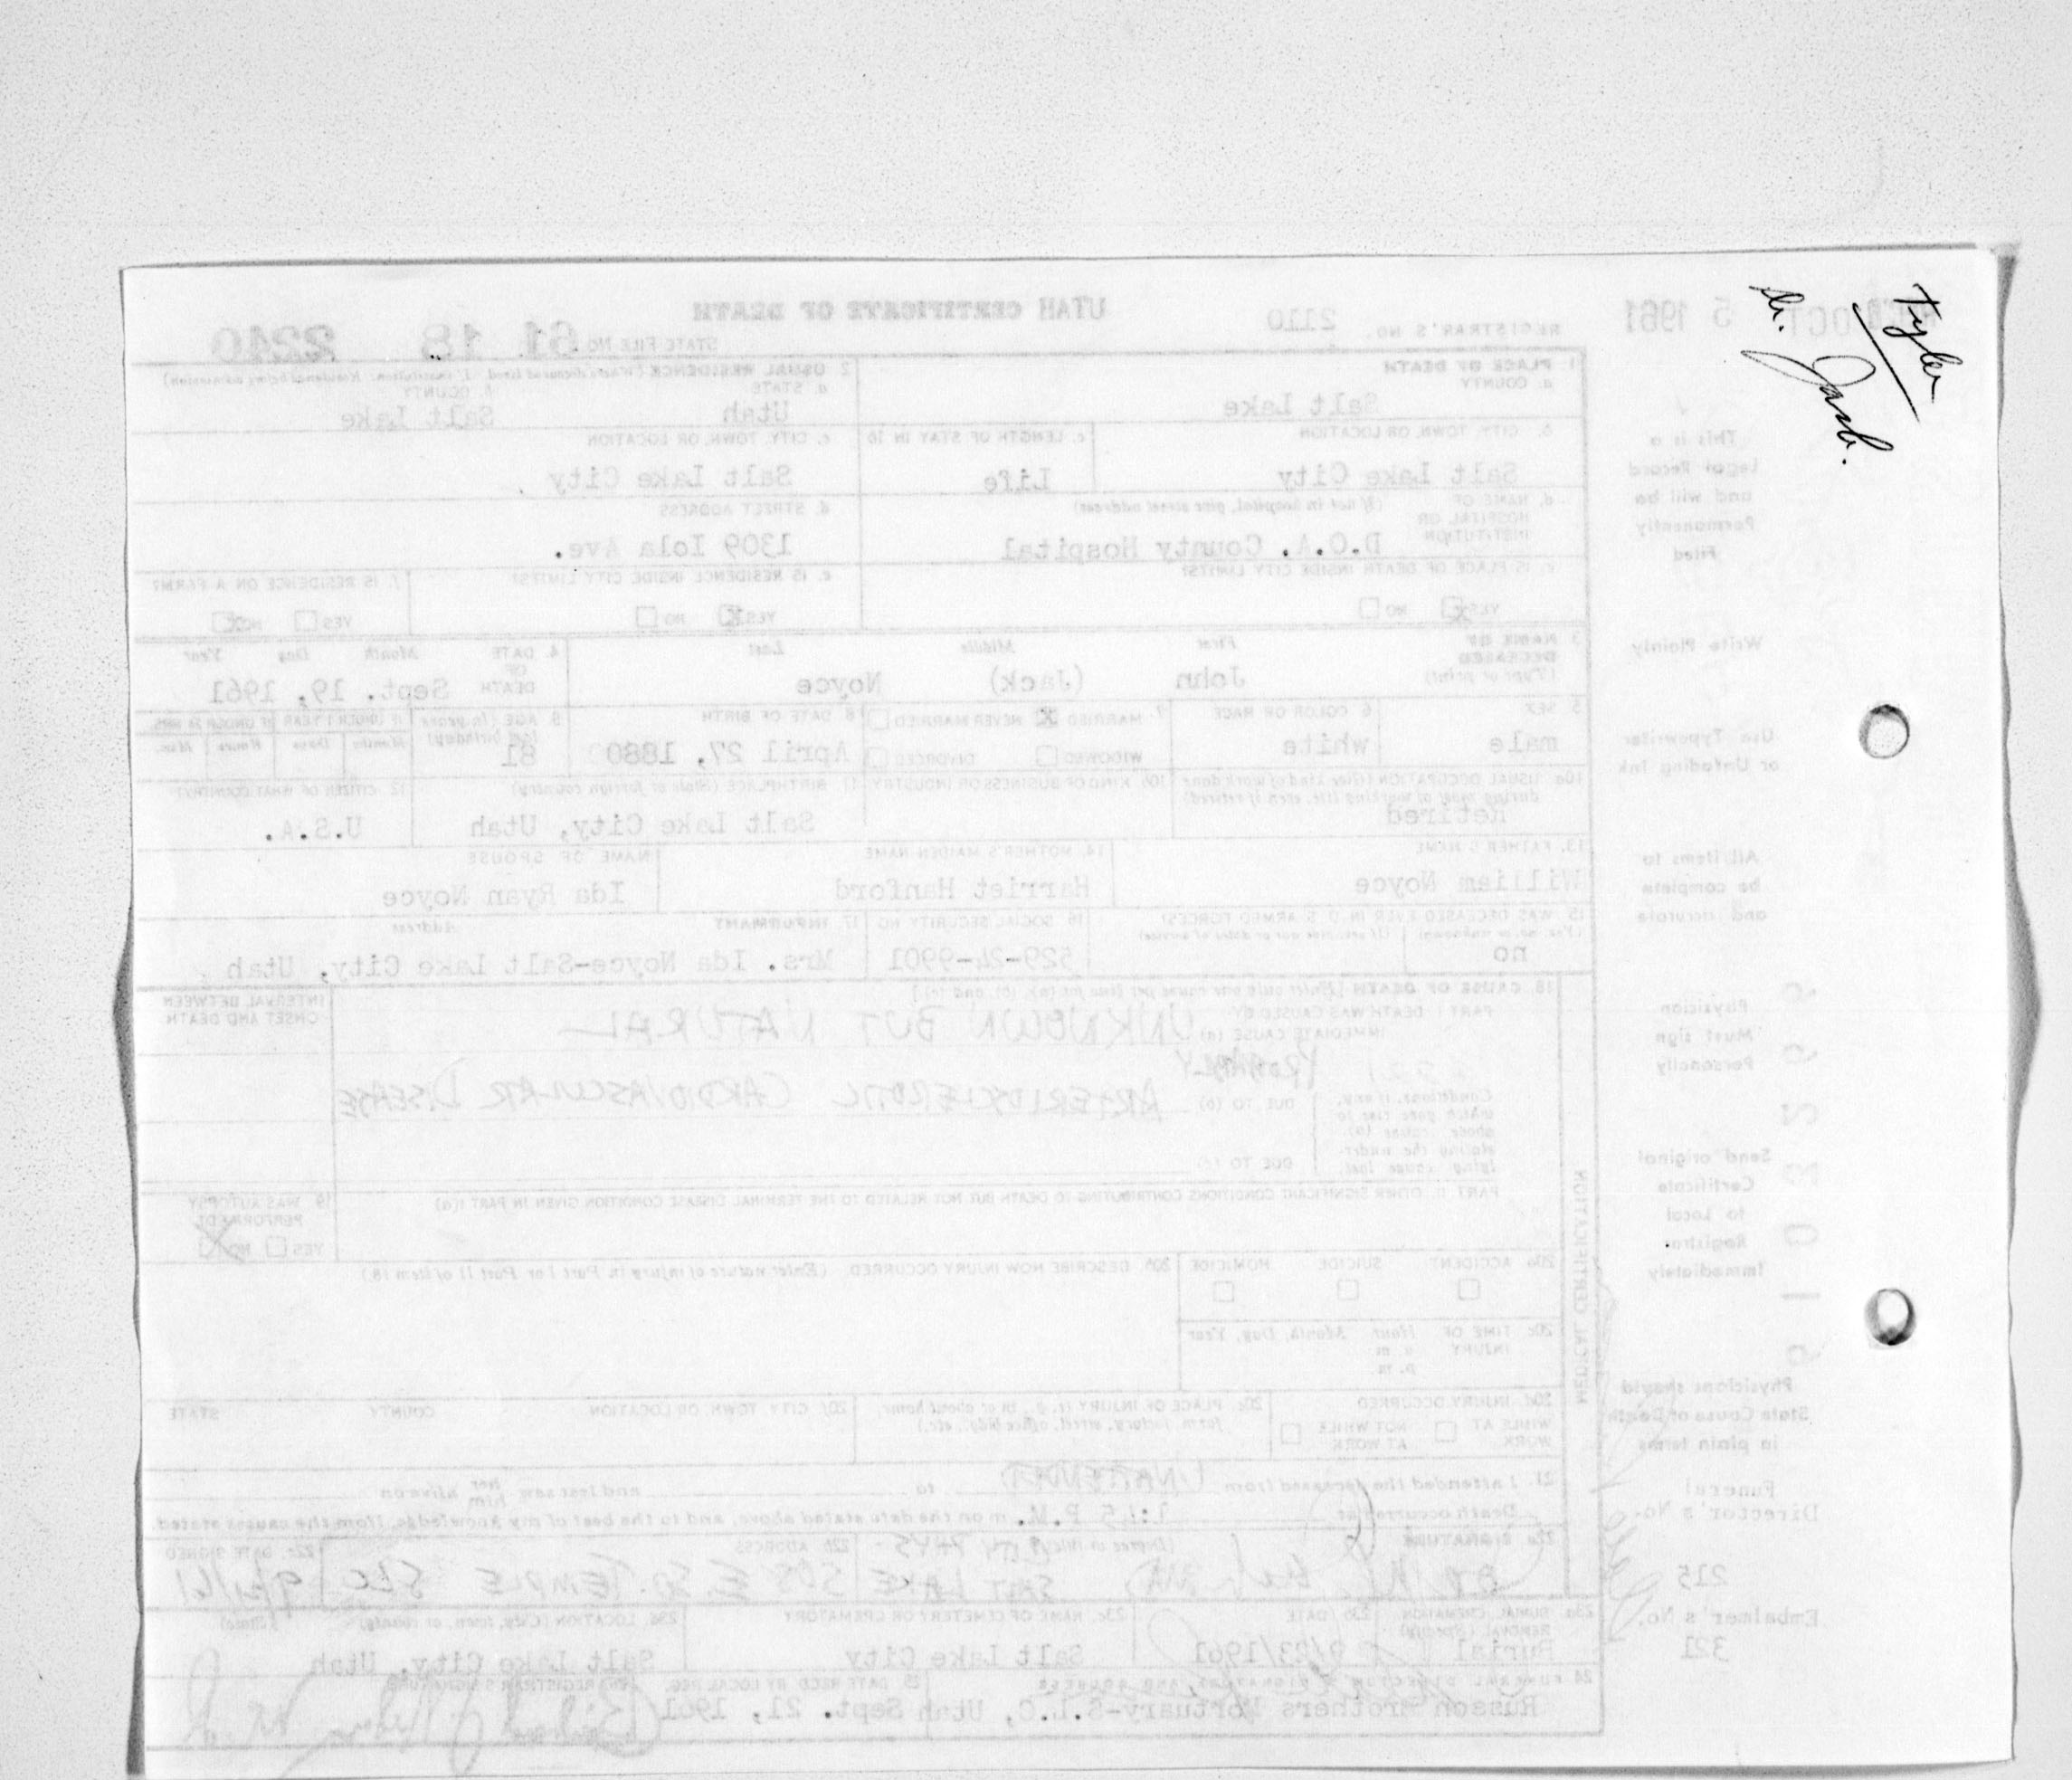 Tyler
Dr. Jacob.
UTAH CERTIFICATE OF DEATH
OCT 5 1961
REGISTRAR'S NO. 2110
STATE FILE NO. 61 18 2240
1 PLACE OF DEATH
a. COUNTY
Salt Lake
2 USUAL RESIDENCE (Where deceased lived. If institution: Residence before admission)
a. STATE
Utah
b. COUNTY
Salt Lake
b. CITY, TOWN, OR LOCATION
Salt Lake City
c. LENGTH OF STAY IN 1b
Life
c. CITY, TOWN, OR LOCATION
Salt Lake City
d. NAME OF HOSPITAL OR INSTITUTION (If not in hospital, give street address)
D.O.A. County Hospital
d. STREET ADDRESS
1309 Iola Ave.
e. IS PLACE OF DEATH INSIDE CITY LIMITS?
YES X NO
e. IS RESIDENCE INSIDE CITY LIMITS?
YES X NO
f. IS RESIDENCE ON A FARM?
YES NO X
3 NAME OF DECEASED (Type or print)
First Middle Last
John (Jack) Noyce
4. DATE OF DEATH Month Day Year
Sept. 19, 1961
5 SEX
male
6 COLOR OR RACE
white
7. MARRIED X NEVER MARRIED
WIDOWED DIVORCED
8 DATE OF BIRTH
April 27, 1880
9 AGE (In years last birthday)
81
IF UNDER 1 YEAR IF UNDER 24 HRS.
Months Days Hours Min.
10a USUAL OCCUPATION (Give kind of work done during most of working life, even if retired)
Retired
10b KIND OF BUSINESS OR INDUSTRY
11 BIRTHPLACE (State or foreign country)
Salt Lake City, Utah
12 CITIZEN OF WHAT COUNTRY?
U.S.A.
13. FATHER'S NAME
William Noyce
14. MOTHER'S MAIDEN NAME
Harriet Hanford
NAME OF SPOUSE
Ida Ryan Noyce
15. WAS DECEASED EVER IN U.S. ARMED FORCES?
(Yes, no, or unknown) (If yes, give war or dates of service)
no
16 SOCIAL SECURITY NO
529-24-9901
17 INFORMANT Address
Mrs. Ida Noyce-Salt Lake City, Utah
18. CAUSE OF DEATH [Enter only one cause per line for (a), (b), and (c).]
PART I DEATH WAS CAUSED BY
IMMEDIATE CAUSE (a)
UNKNOWN BUT NATURAL
PROBABLY
Conditions, if any, which gave rise to above cause (a), stating the underlying cause last.
DUE TO (b)
ARTERIOSCLEROTIC CARDIOVASCULAR DISEASE
DUE TO (c)
INTERVAL BETWEEN ONSET AND DEATH
PART II. OTHER SIGNIFICANT CONDITIONS CONTRIBUTING TO DEATH BUT NOT RELATED TO THE TERMINAL DISEASE CONDITION GIVEN IN PART I(a)
19 WAS AUTOPSY PERFORMED?
YES NO X
20a ACCIDENT SUICIDE HOMICIDE
20b. DESCRIBE HOW INJURY OCCURRED (Enter nature of injury in Part I or Part II of item 18)
20c TIME OF INJURY Hour Month, Day, Year
a. m.
p. m.
20d INJURY OCCURRED
WHILE AT WORK NOT WHILE AT WORK
20e. PLACE OF INJURY (e. g., in or about home, farm, factory, street, office bldg., etc.)
20f CITY TOWN OR LOCATION COUNTY STATE
21. I attended the deceased from UNATTENDED to and last saw her him alive on
Death occurred at 1:45 P.M. m on the date stated above, and to the best of my knowledge, from the causes stated.
22a SIGNATURE (Degree or title)
CITY PHYS -
SALT LAKE
22b ADDRESS
505 E. SO. TEMPLE SLC
22c. DATE SIGNED
23a BURIAL, CREMATION, REMOVAL (Specify)
Burial
23b DATE
9/23/1961
23c NAME OF CEMETERY OR CREMATORY
Salt Lake City
23d LOCATION (City, town, or county) (State)
Salt Lake City, Utah
24 FUNERAL DIRECTOR'S SIGNATURE AND ADDRESS
Russon Brothers Mortuary-S.L.C, Utah
25 DATE RECD BY LOCAL REG.
Sept. 21, 1961
REGISTRAR'S SIGNATURE
MEDICAL CERTIFICATION
This is a Legal Record and will be Permanently Filed
Write Plainly
Use Typewriter or Unfading Ink
All items to be complete and accurate
Physician Must sign Personally
Send original Certificate to Local Registrar Immediately
Physicians should State Cause of Death in plain terms
Funeral Director's No.
215
Embalmer's No.
321